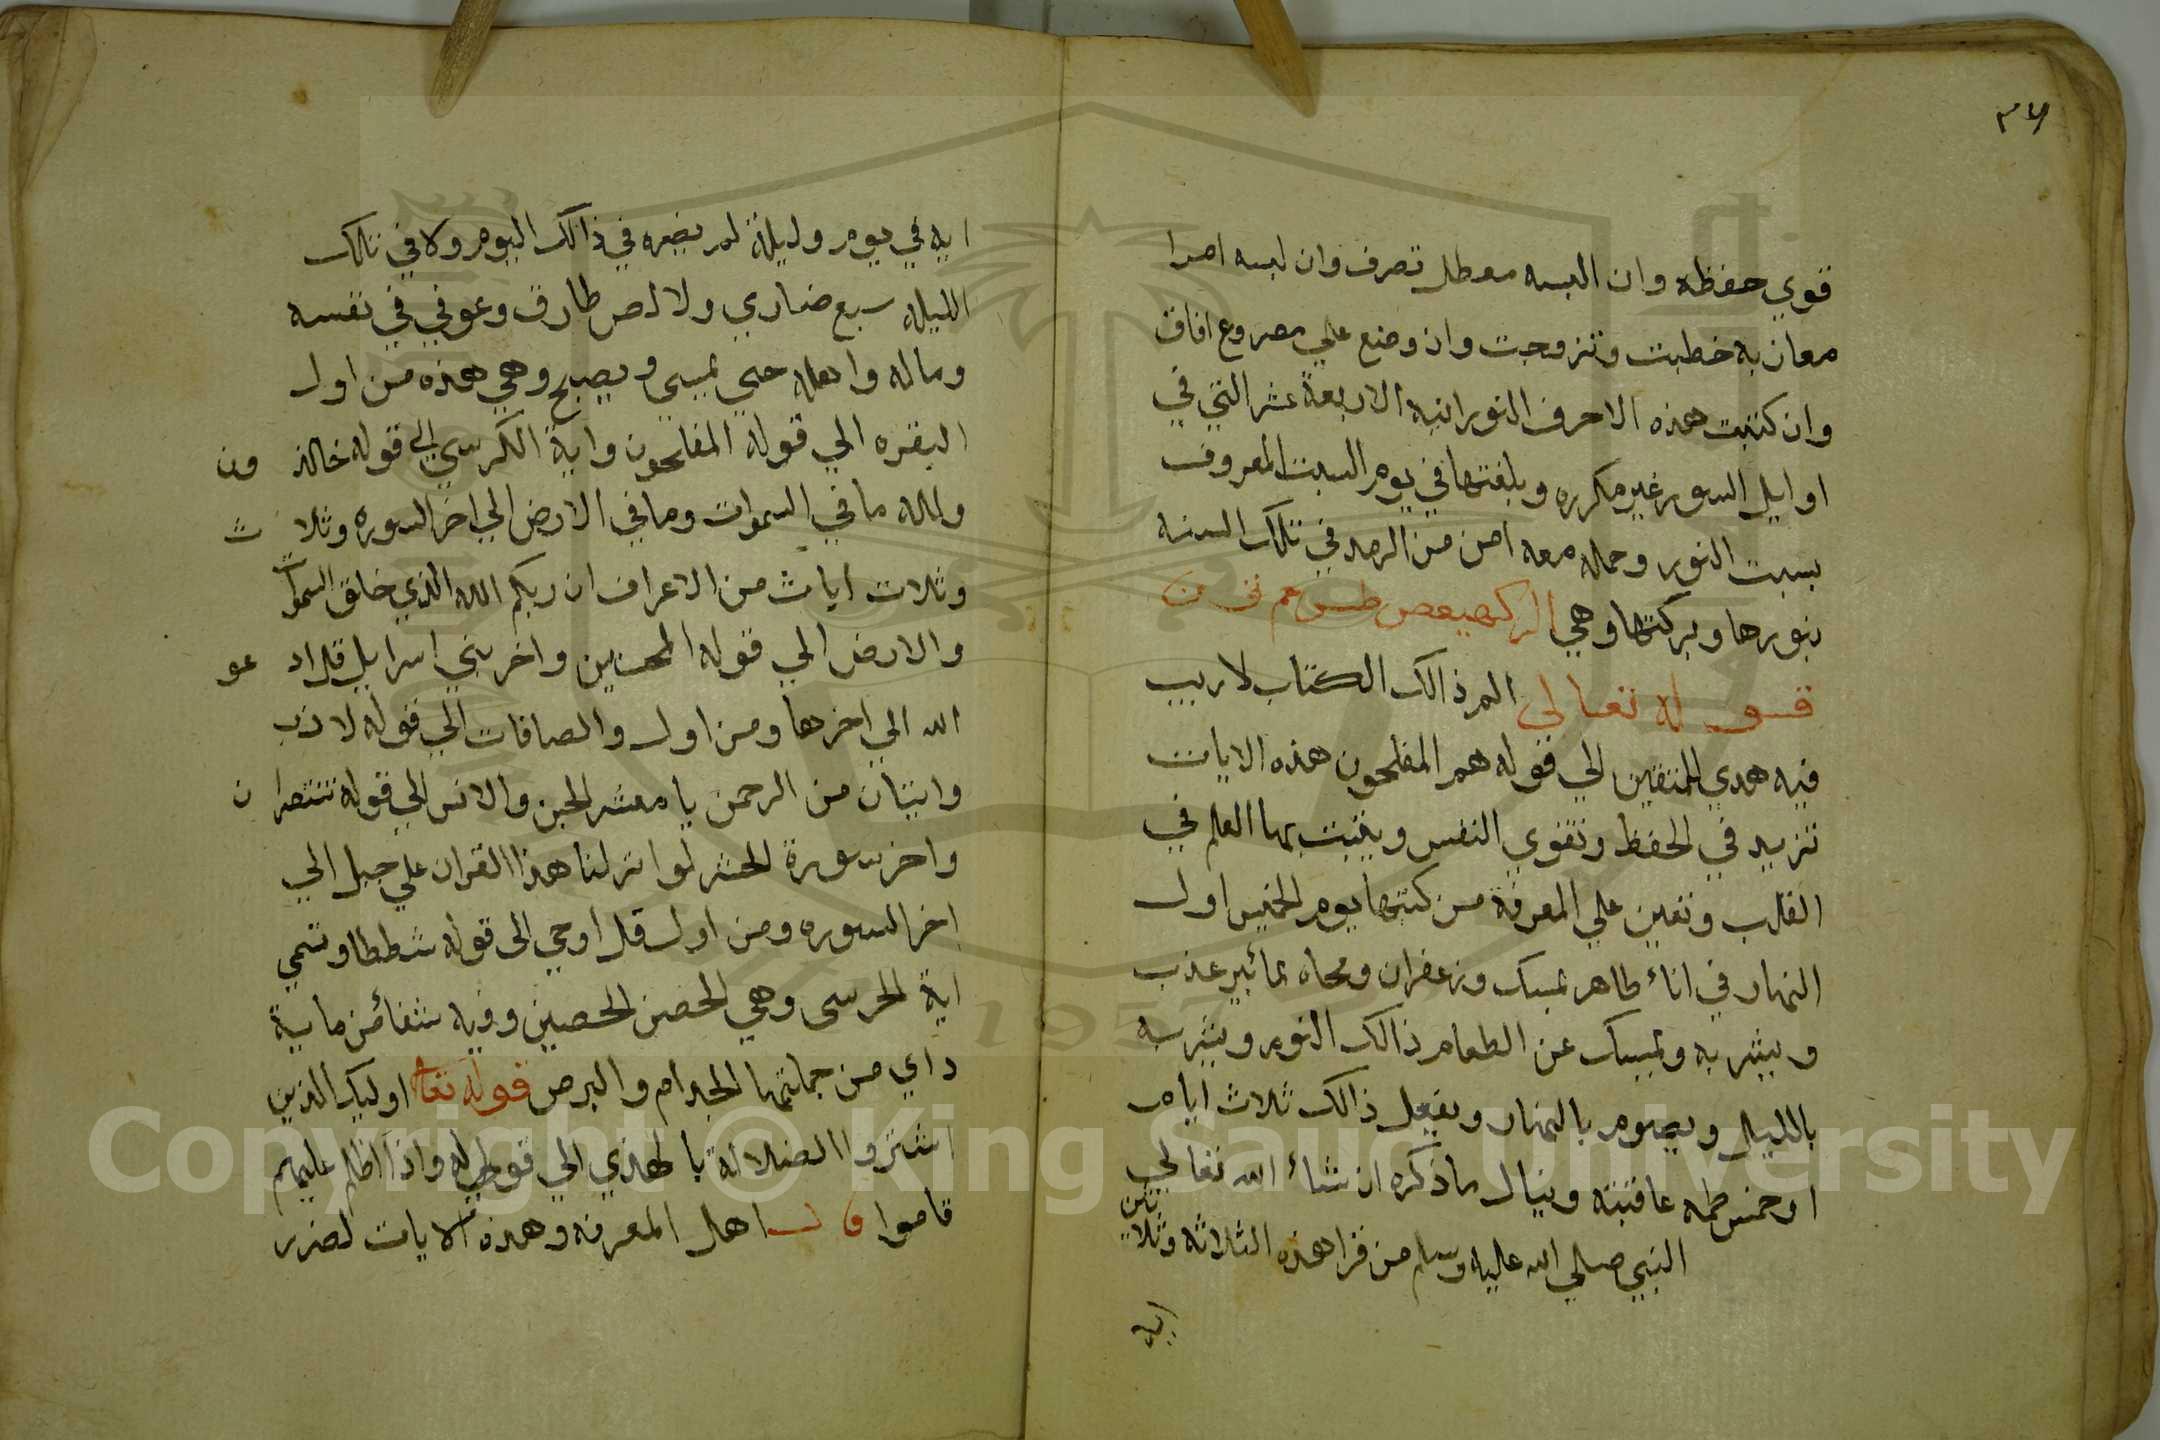 ٣٧
قوي حفظه وان البسه معطل تصرف وان لبسه امرا
معان به خطبت وتزوجت وان وضع علي مصروع افاق
وان كتبت هذه الاحرف النورانيه الاربعة عشر التي في
اوايل السور غير مكرره وبلغتها في يوم السبت المعروف
بسبت النور وحمله معه امن من الرمد في تلك السنه
بنورها وبركتها وهي الر كهيعص طس حم ق ن
قوله تعالى الم ذالك الكتاب لا ريب
فيه هدي للمتقين الي قوله هم المفلحون هذه الايات
تزيد في الحفظ وتقوي النفس ويثبت بها العلم في
القلب وتعين علي المعرفة من كتبها يوم الخميس اول
النهار في اناء طاهر بمسك وزعفران ومحاه بماء بير عذب
ويشربه ويمسك عن الطعام ذالك اليوم ويشربه
بالليل ويصوم بالنهار ويفعل ذالك ثلاث ايام
او خمس طمه عافيته وينال ما ذكره ان شاء الله تعالي
النبي صلي الله عليه وسلم من قرا هذه الثلاثه وثلاثين
ايه
ايه في يوم وليلة لم يضره في ذالك اليوم ولا في تلك
الليله سبع ضاري ولا لص طارق وعوفي في نفسه
وماله واهله حتي يمسي ويصبح وهي هذه من اول
البقره الي قوله المفلحون واية الكرسي الي قوله خالدون
ولله ما في السموات وما في الارض الي اخر السوره وثلاث
وثلاث ايات من الاعراف ان ربكم الله الذي خلق السموات
والارض الي قوله المحسنين واخر بني اسرايل قل ادعو
الله الي اخرها ومن اول والصافات الي قوله لازب
وايتان من الرحمن يا معشر الجن والانس الي قوله تنتصران
واخر سورة الحشر لو انزلنا هذا القران علي جبل الي
اخر السوره ومن اول قل اوحي الى قوله شططا وتسمي
اية الحرسى وهي الحصن الحصين وفيه شفاء من ماية
داي من جملتها الجدام والبرص قوله تعا اوليك الذين
اشتروا الضلالة بالهدي الي قوله واذا اظلم عليهم
قاموا قال اهل المعرفه وهذه الايات لضرر
Copyright © King Saud University
1957